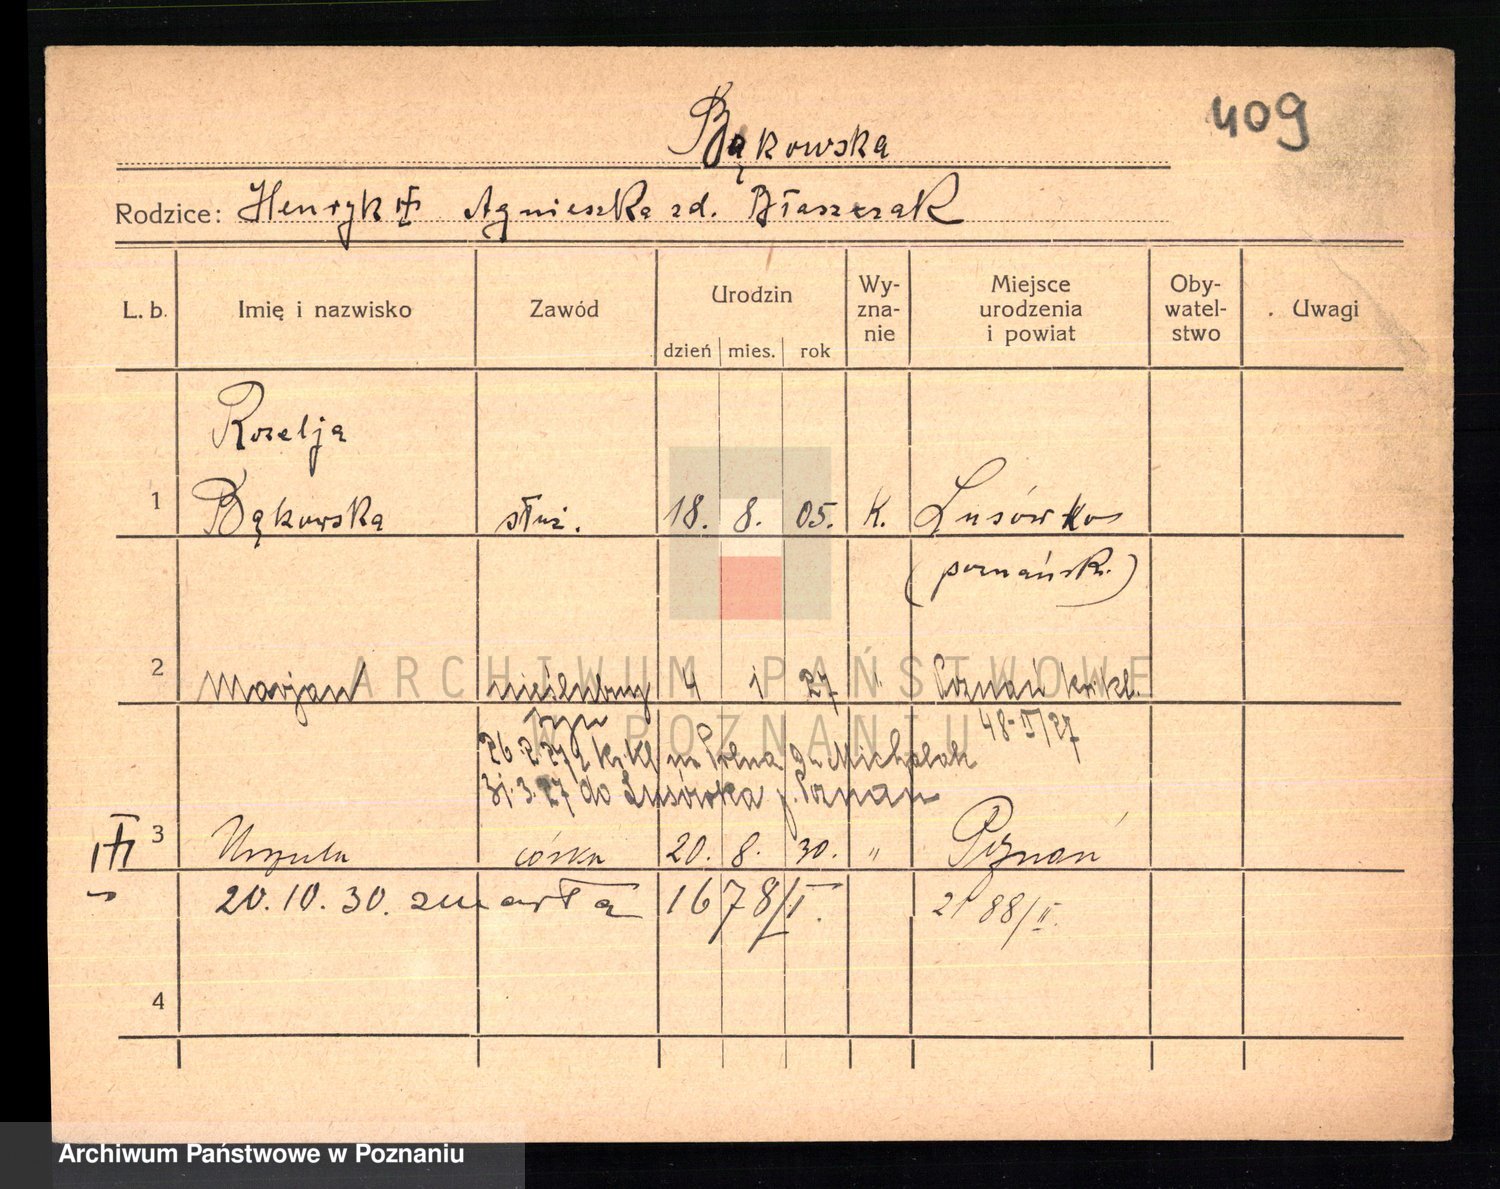 409
Bąkowska
Rodzice: Henryk Agnieszka zd. Błaszczak
L. b. Imię i nazwisko Zawód Urodzin dzień mies. rok Wy-zna-nie Miejsce urodzenia i powiat Oby-watel-stwo Uwagi
Rozalja
1 Bąkowska służ. 18. 8. 05. K. Lusówko
(poznańsk.)
2 Marjan nieślubny 4 1 27 " Poznań kr.kl.
syn 48-II/27
26.2.27 kr.kl Polna Michalak
31.3.27 do Lusówka p. Poznań
3 Urszula córka 20. 8. 30. " Poznań
20.10.30. zmarła 1678/I. 2188/II.
4
ARCHIWUM PAŃSTWOWE
W POZNANIU
Archiwum Państwowe w Poznaniu